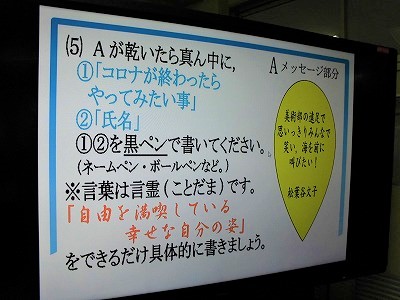 (5) Aが乾いたら真ん中に,
①「コロナが終わったら
やってみたい事」
②「氏名」
①②を黒ペンで書いてください。
(ネームペン・ボールペンなど。)
※言葉は言霊(ことだま)です。
「自由を満喫している
幸せな自分の姿」
をできるだけ具体的に書きましょう。
Aメッセージ部分
美術部の遠足で
思いっきりみんなで
笑い、海を前に
叫びたい!
松葉谷文子